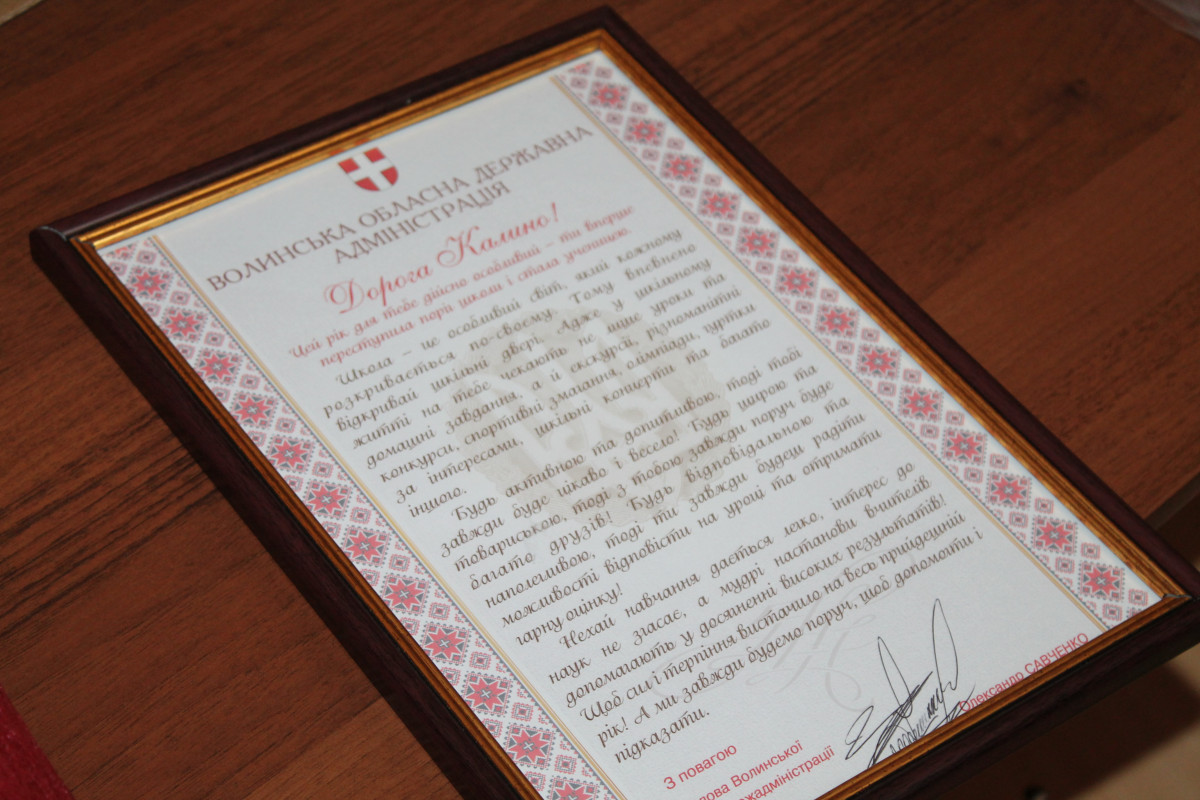 ВОЛИНСЬКА ОБЛАСНА ДЕРЖАВНА
АДМІНІСТРАЦІЯ
Дорога Калино!
Цей рік для тебе дійсно особливий – ти вперше
переступила поріг школи і стала ученицею.
Школа – це особливий світ, який кожному
розкривається по-своєму. Тому впевнено
відкривай шкільні двері. Адже у шкільному
житті на тебе чекають не лише уроки та
домашні завдання, а й екскурсії, різноманітні
конкурси, спортивні змагання, олімпіади, гуртки
за інтересами, шкільні концерти та багато
іншого.
Будь активною та допитливою, тоді тобі
завжди буде цікаво і весело! Будь щирою та
товариською, тоді з тобою завжди поруч буде
багато друзів! Будь відповідальною та
наполегливою, тоді ти завжди будеш радіти
можливості відповісти на уроці та отримати
гарну оцінку!
Нехай навчання дається легко, інтерес до
наук не згасає, а мудрі настанови вчителів
допомагають у досягненні високих результатів!
Щоб сил і терпіння вистачило на весь прийдешній
рік! А ми завжди будемо поруч, щоб допомогти і
підказати.
З повагою
лова Волинської
жадміністрації
Олександр САВЧЕНКО